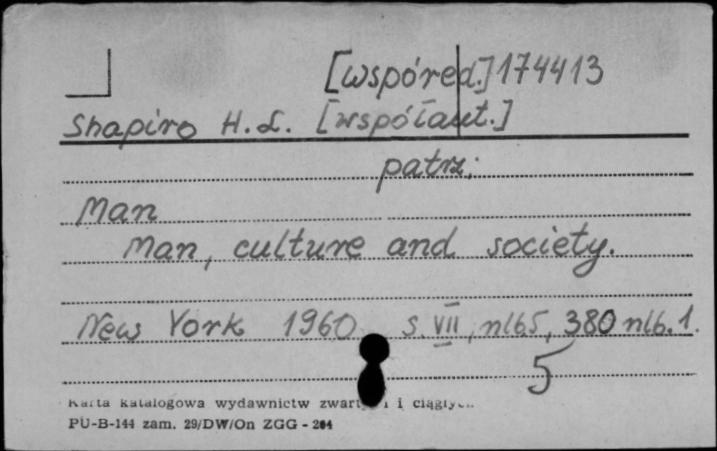 [współred.] 174413
Shapiro H.L. [współaut.]
patrz:
Man
Man, culture and society.
New York 1960 s. VII, nlb5, 380 nlb. 1.
5
Karta katalogowa wydawnictw i
PU-B-144 zam. 29/DW/On ZGG - 204